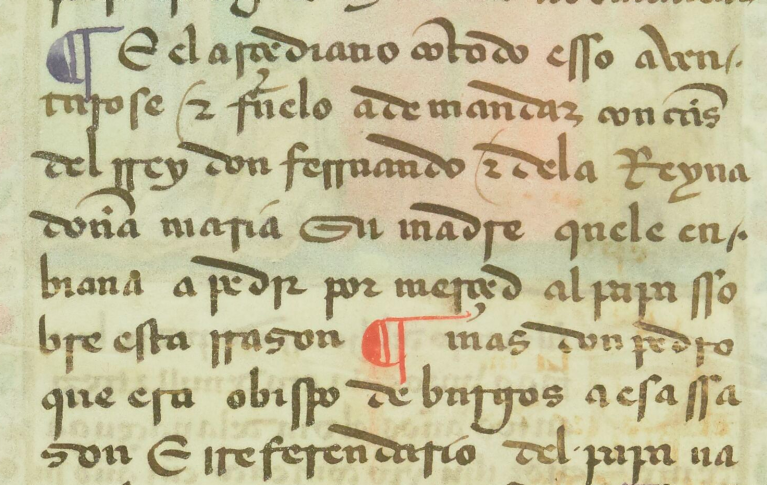 ¶ E el arçediano cõ todo esso auen-
turose ⁊ fuelo a demandar con cartas
del rrey don ferrnando ⁊ dela Reyna
doña maria Su madre quele en-
biaua a pedir por merçed al papa sso
bre esta rrason ¶ mas don pedro
que era obispo de burgos a esa ssa
son E rreferendario del papa ua